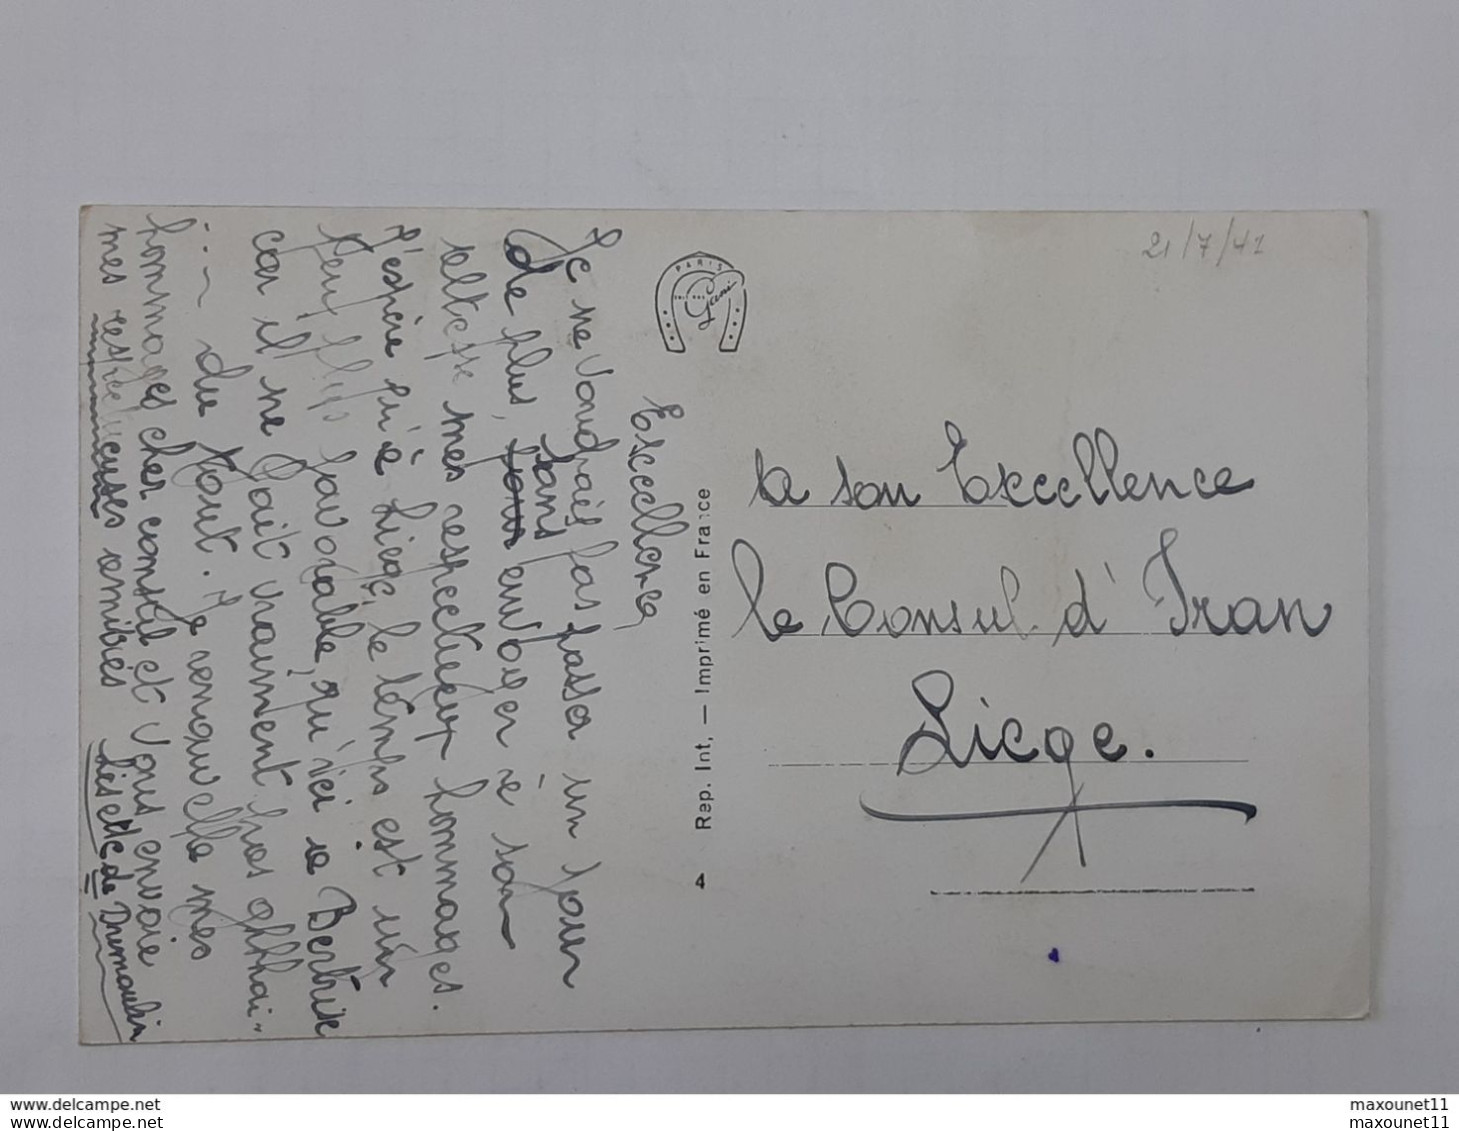 Excellence,
Je ne voudrais pas passer un jour
de plus, sans envoyer à son
altesse mes respectueux hommages.
J'espère qu'à Liège, le temps est un
peu plus favorable, qu'ici à Bertrix
car il ne fait vraiment pas 
du tout. Je renouvelle mes
hommages cher consul et vous envoie
mes respectueuses amitiés
Lisette de Dumoulin
PARIS
Gani
4 Rep. Int. — Imprimé en France
21/7/41
a son Excellence
le Consul d'Iran
Liege.
maxounet11
maxounet11
maxounet11
maxounet11